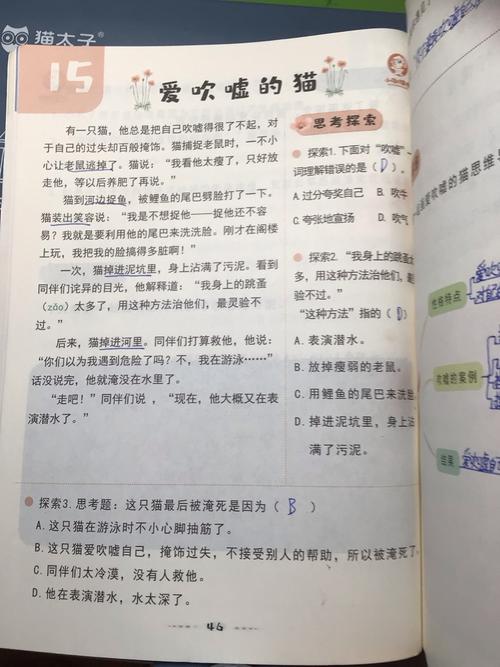 猫太子
15
爱吹嘘的猫
有一只猫，他总是把自己吹嘘得很了不起，对
于自己的过失却百般掩饰。猫捕捉老鼠时，一不小
心让老鼠逃掉了。猫说：“我看他太瘦了，只好放
走他，等以后养肥了再说。”
猫到河边捉鱼，被鲤鱼的尾巴劈脸打了一下。
猫装出笑容说：“我不是想捉他——捉他还不容
易？我就是要利用他的尾巴来洗洗脸。刚才在阁楼
上玩，我把我的脸搞得多脏啊！”
一次，猫掉进泥坑里，身上沾满了污泥。看到
同伴们诧异的目光，他解释道：“我身上的跳蚤
（zǎo）太多了，用这种方法治他们，最灵验不
过。”
后来，猫掉进河里。同伴们打算救他，他说：
“你们以为我遇到危险了吗？不，我在游泳……”
话没说完，他就淹没在水里了。
“走吧！”同伴们说，“现在，他大概又在表
演潜水了。”
思考探索
探索1.下面对“吹嘘”一
词理解错误的是（D）。
A.过分夸奖自己 B.吹牛
C.夸张地宣扬 D.吹气
探索2.“我身上的跳蚤太
多，用这种方法治他们，最灵
验不过。”
“这种方法”指的（D）
A.表演潜水。
B.放掉瘦弱的老鼠。
C.用鲤鱼的尾巴来洗脸
D.掉进泥坑里，身上沾
满了污泥。
探索3.思考题：这只猫最后被淹死是因为（B）
A.这只猫在游泳时不小心脚抽筋了。
B.这只猫爱吹嘘自己，掩饰过失，不接受别人的帮助，所以被淹死了
C.同伴们太冷漠，没有人救他。
D.他在表演潜水，水太深了。
46
爱吹嘘的猫思维导
性格特点
吹嘘的案例
结果